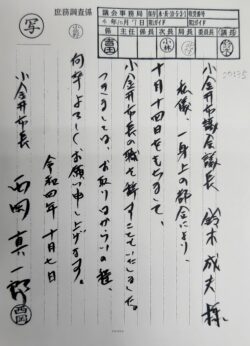 写
庶務調査係
議会事務局
保存 永・長・10・5・3・1
令和4年10月7日
係
主任
係長
次長
局長
委員長
議長
小金井市議会議長 鈴木成夫様
私儀、一身上の都合により、
十月十四日をもちまして、
小金井市長の職を辞することといたしました。
つきましては、お取り計らいの程、
何卒よろしくお願い申し上げます。
令和四年十月七日
小金井市長 西岡真一郎
西岡